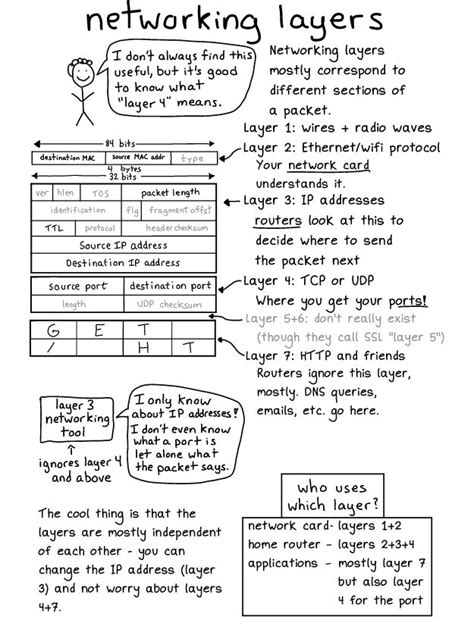 networking layers
I don't always find this
useful, but it's good
to know what
"layer 4" means.
Networking layers
mostly correspond to
different sections of
a packet.
Layer 1: wires + radio waves
Layer 2: Ethernet/wifi protocol
Your network card
understands it.
Layer 3: IP addresses
routers look at this to
decide where to send
the packet next
Layer 4: TCP or UDP
Where you get your ports!
Layer 5+6: don't really exist
(though they call SSL "layer 5")
Layer 7: HTTP and friends
Routers ignore this layer,
mostly. DNS queries,
emails, etc. go here.
84 bits
destination MAC source MAC addr type
4 bytes
32 bits
ver hlen TOS packet length
identification flg fragment offst
TTL protocol header checksum
Source IP address
Destination IP address
source port destination port
length UDP checksum
G E T
/ H T
layer 3
networking
tool
ignores layer 4
and above
I only know
about IP addresses!
I don't even know
what a port is
let alone what
the packet says.
The cool thing is that the
layers are mostly independent
of each other - you can
change the IP address (layer
3) and not worry about layers
4+7.
who uses
which layer?
network card - layers 1+2
home router - layers 2+3+4
applications - mostly layer 7
but also layer
4 for the port